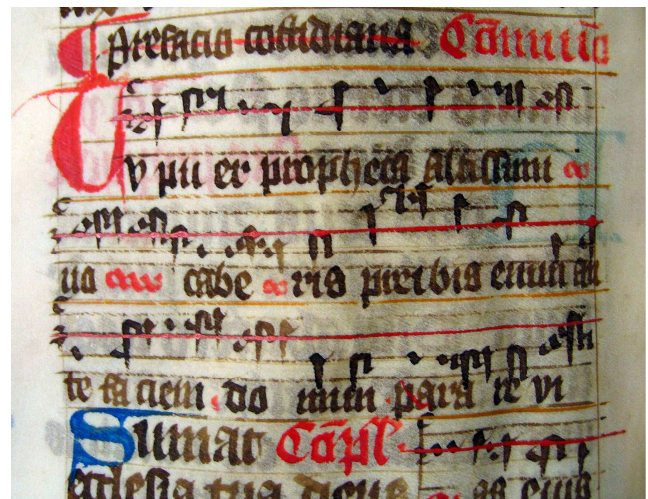 Prefacio cottidiana Cōmuīo
Tu pu er propheta altissimi
ua cabe ris preibis enim an
te faciem do mini para re vi
Sumat Cōpl
ecclesia tua deus